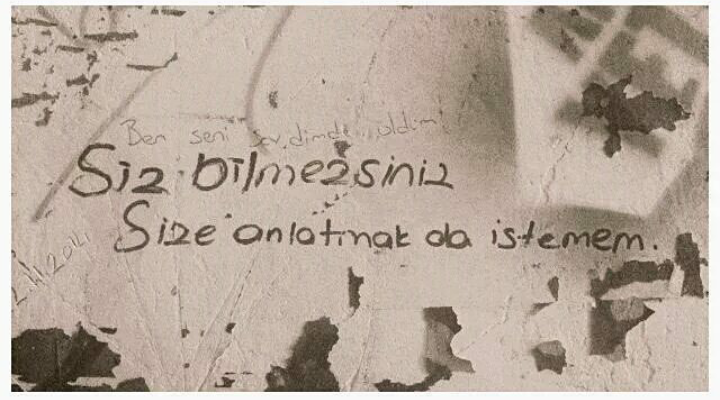 Ben seni sevdimde öldüm
Siz bilmezsiniz
Size anlatmak da istemem.